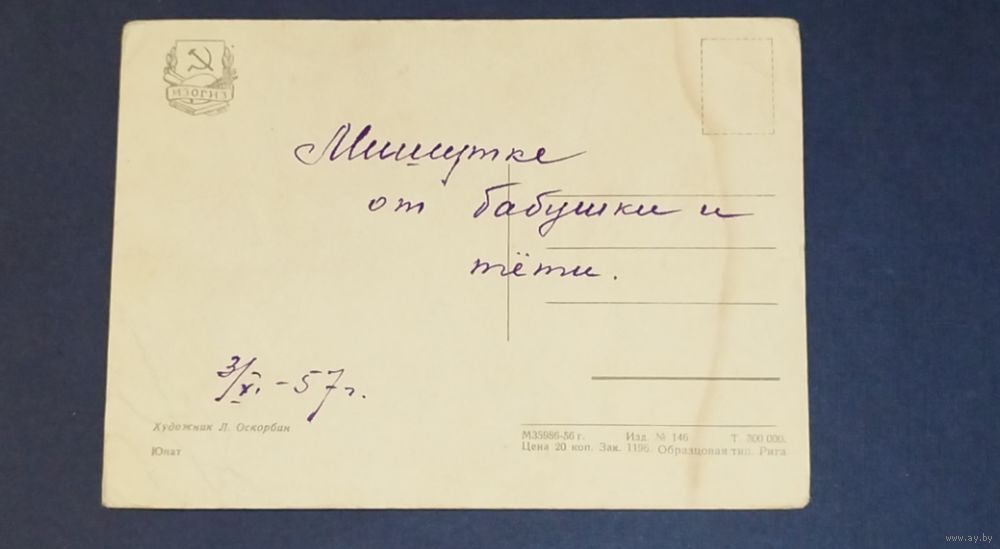 ИЗОГИЗ
Мишутке
от бабушки и
тёти.
3/X. - 57 г.
Художник Л. Оскорбин
Юнат
М35986-56 г. Изд. № 146 Т. 300 000.
Цена 20 коп. Зак. 1196. Образцовая тип. Рига
www.ay.by